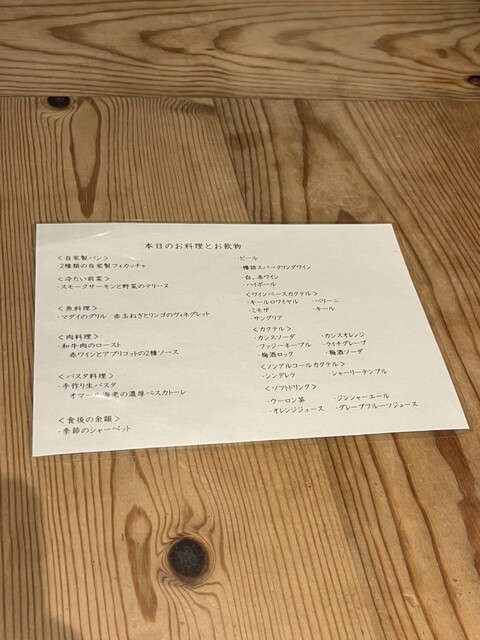 本日のお料理とお飲物
＜自家製パン＞
・2種類の自家製フォカッチャ
＜冷たい前菜＞
・スモークサーモンと野菜のテリーヌ
＜魚料理＞
・マダイのグリル 赤玉ねぎとリンゴのヴィネグレット
＜肉料理＞
・和牛肉のロースト
赤ワインとアプリコットの2種ソース
＜パスタ料理＞
・手作り生パスタ
オマール海老の濃厚ペスカトーレ
＜食後の余韻＞
・季節のシャーベット
ビール
・樽詰スパークリングワイン
・白、赤ワイン
・ハイボール
＜ワインベースカクテル＞
・キールロワイヤル ・ベリーニ
・ミモザ ・キール
・サングリア
＜カクテル＞
・カシスソーダ ・カシスオレンジ
・ファジーネーブル ・ライチグレープ
・梅酒ロック ・梅酒ソーダ
＜ノンアルコールカクテル＞
・シンデレラ ・シャーリーテンプル
＜ソフトドリンク＞
・ウーロン茶 ・ジンジャーエール
・オレンジジュース ・グレープフルーツジュース